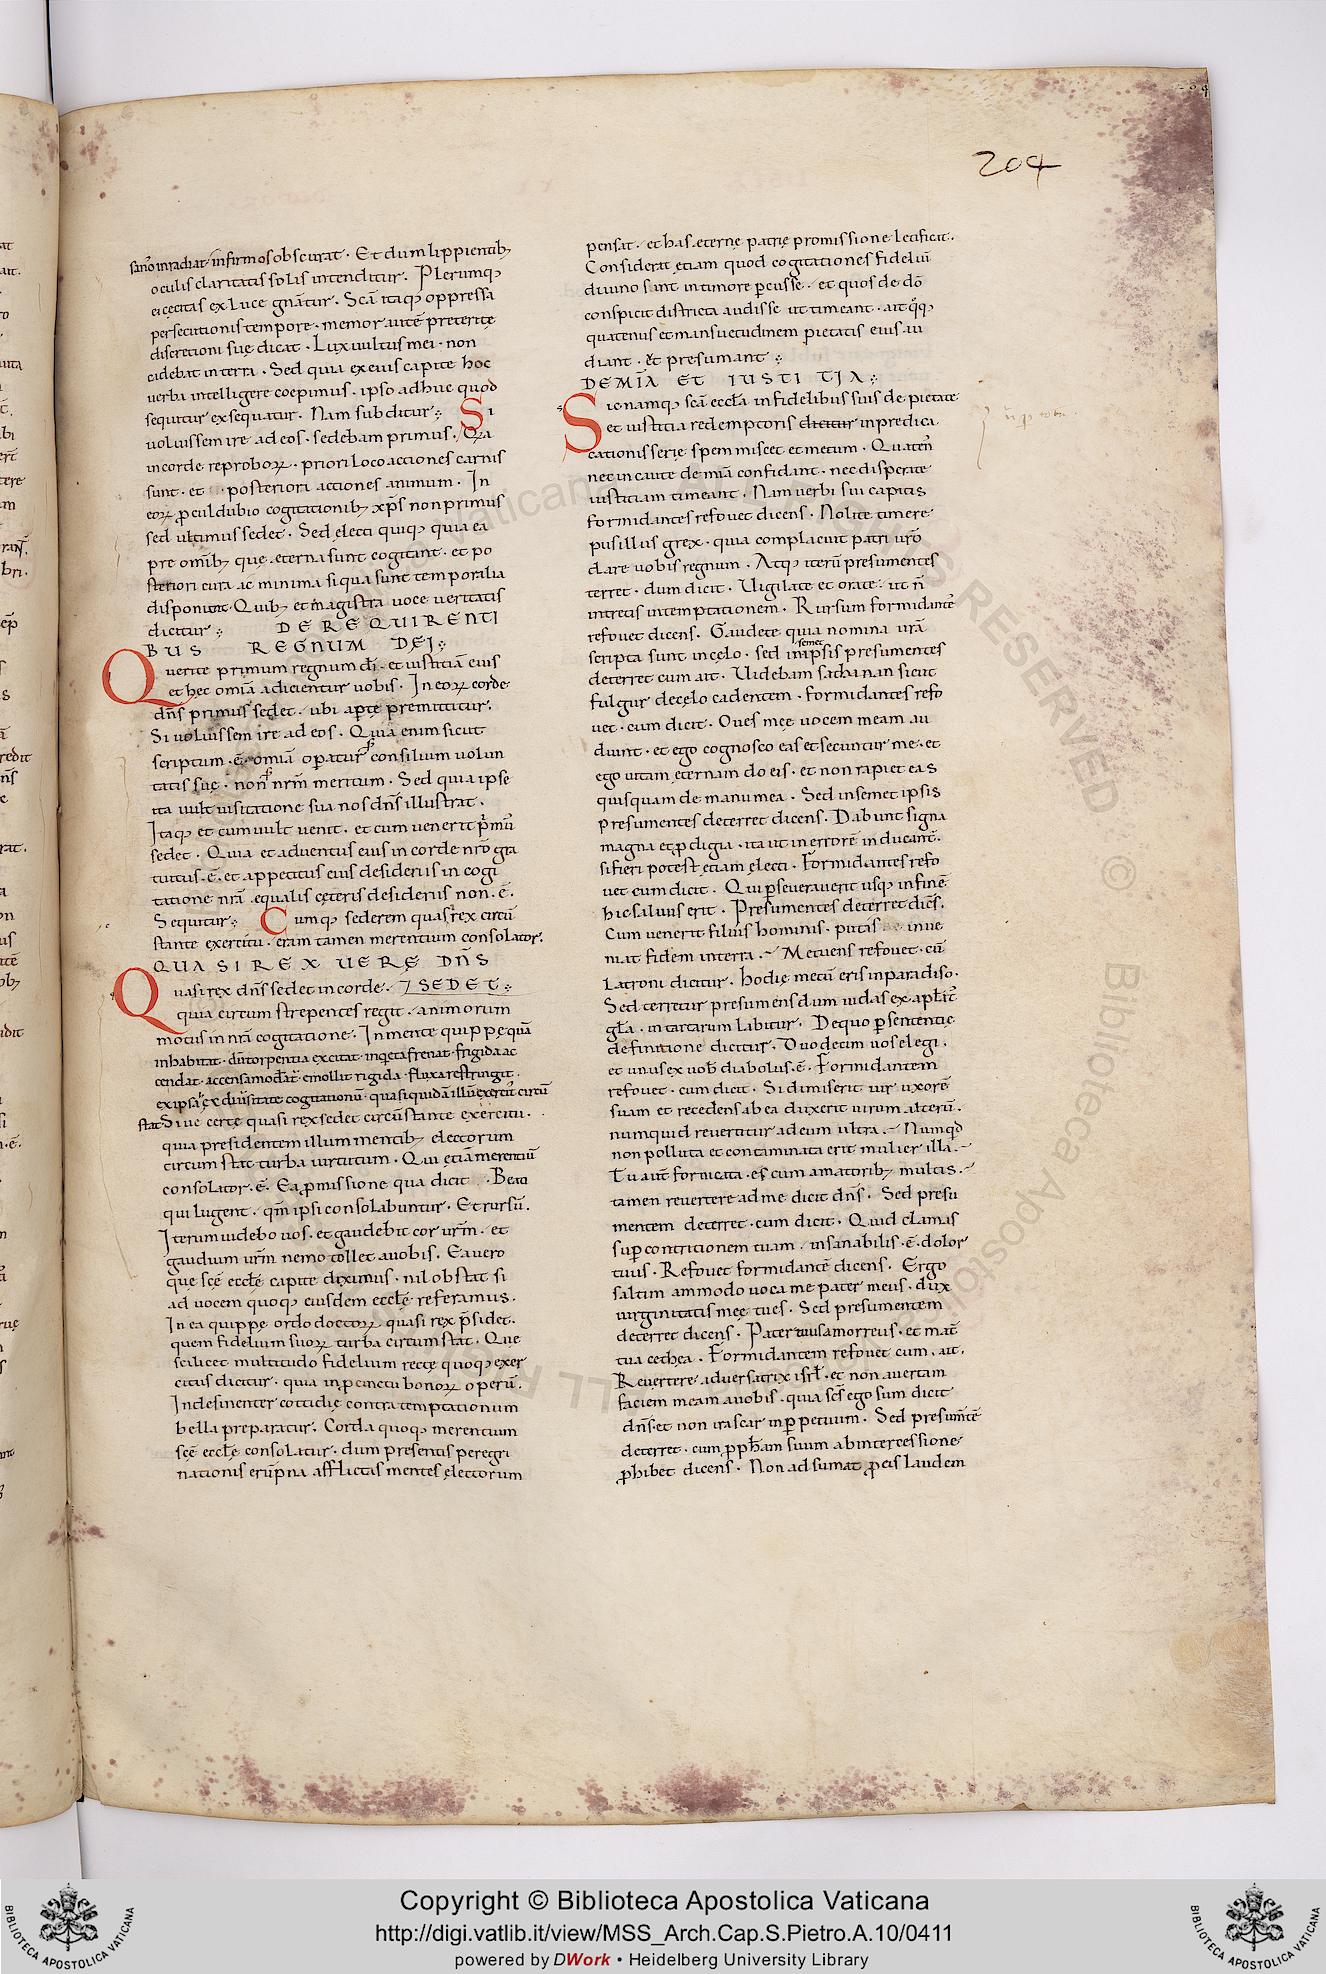 204
sano inradiat infirmos obscurat · Et dum lippientib;
oculis claritatis solis intenditur · Plerumq;
ei cecitas ex luce gnātur · Scā itaq; oppressa
persecutionis tempore · memor autē preteritę
discretioni suę dicat · Lux vultus mei · non
cadebat in terra · Sed quia ex eius capite hoc
verba intelligere coepimus · ipso adhuc quod
sequitur exsequatur · Nam subditur · Si
voluissem ire ad eos · sedebam primus · Qia
in corde reproboꝝ · priori loco acciones carnis
sunt · et posteriori acciones animum · In
eoꝝ p̄cul dubio cogitationib; xp̄s non primus
sed ultimus sedet · Sed electi quiq; quia ea
pre omīb; quę eterna sunt cogitant · et po
steriori cura ac minima siqua sunt temporalia
disponunt · Quib; et magistra voce veritatis
dicitur · DE REQUIRENTI
BUS REGNUM DEI·
Querite primum regnum dī · et iustitiā eius
et hęc omīa adicientur vobis · In eoꝝ corde
dn̄s primus sedet · ubi apte premittitur·
Si voluissem ire ad eos · Quia enim sicut
scriptum · ē · omīa operatur consilium volun
tatis suę · non nr̄m meritum · Sed quia ipse
ita vult visitatione sua nos dn̄s illustrat ·
Itaq; et cum vult venit · et cum venerit p̄mū
sedet · Quia et adventus eius in corde nr̄o gra
tuitus · ē · et appetitus eius desideriis in cogi
tatione nrā equalis cęteris desideriis non · ē ·
Sequitur · Cumq; sederem quasi rex circū
stante exercitu · eram tamen merentium consolator·
QUASI REX UERE DN̄S
Quasi rex dn̄s sedet in corde · ISEDET·
quia circum strepentes regit · animorum
motus in nrā cogitatione · In mente quippę quā
inhabitat · dū torpentia excitat · inquieta frenat · frigida ac
cendat · accensa moderat · emollit rigida · fluxa restringit ·
ex ipsa rex diversitate cogitationū · quasi quidā illū exercit circū
stat Siue certę quasi rex sedet circūstante exercitu ·
quia presidentem illum mentib; electorum
circum stat turba virtutum · Qui etiā merentiū
consolator · ē · Ea p̄missione qua dicit · Beati
qui lugent · qm̄ ipsi consolabuntur · Et rursū ·
Iterum videbo vos · et gaudebit cor vr̄m · et
gaudium vr̄m nemo tollet a vobis · Ea vero
que scē eccłę capite diximus · nil obstat si
ad vocem quoq; eiusdem eccłę referamus ·
In ea quippę ordo doctoꝝ quasi rex p̄sidet ·
quem fidelium suoꝝ turba circum stat · Que
scilicet multitudo fidelium recte quoq; exer
citus dicitur · quia in p̄cinctu bonoꝝ operū ·
Indesinenter cottidię contra temptationum
bella preparatur · Corda quoq; merentium
scē eccłę consolatur · dum presentis peregri
nationis erūpna afflictas mentes electorum
pensat · et has eternę patrię promissione letificit ·
Considerat etiam quod cogitationes fideliū
divino sunt in timore p̄cusse · et quos de dō
conspicit districta audisse ut timeant · ait q̄q;
quatenus et mansuetudinem pietatis eius au
diant · et presumant ·
DEMĪA ET IUSTITIA·
Sic namq; scā eccłā in fidelibus suis de pietate
et iustitia redemptoris dicitur in predica
cationis serie spem miscet et metum · Quaten̄
nec incaute de mīa confidant · nec disperate
iustitiam timeant · Nam verbi sui capitis
formidantes refovet dicens · Nolite timere
pusillus grex · quia complacuit patri vr̄o
dare vobis regnum · Atq; iterū presumentes
terret · dum dicit · Vigilate et orate · ut n̄
intretis in temptationem · Rursum formidantes
refovet dicens · Gaudete quia nomina vrā
scripta sunt in celo · sed in semet ipsis presumentes
deterret cum ait · Videbam sathanan sicut
fulgur de celo cadentem · formidantes refo
vet · cum dicit · Oves męe vocem meam au
diunt · et ego cognosco eas et secuntur me · et
ego vitam eternam do eis · et non rapiet eas
quisquam de manu mea · Sed in semet ipsis
presumentes deterret dicens · Dabunt signa
magna et p̄digia · ita ut in errorē inducant̄ ·
si fieri potest etiam electi · Formidantes refo
vet cum dicit · Qui p̄severaverit usq; in finē
hic salvus erit · Presumentes deterret dicēs ·
Cum venerit filius hominis · putas inve
niat fidem in terra · Metuens refovet · cū
Latroni dicitur · hodię mecū eris in paradiso ·
Sed terretur presumens dum iudas ex apłat̄
gła · in tartarum labitur · De quo p̄ sententię
definitione dicitur · Duodecim vos elegi ·
et unus ex vob̄ diabolus · ē · Formidantem
refovet · cum dicit · Si dimiserit vir uxorē
suam et recedens ab ea duxerit virum alterū ·
numquid revertitur ad eum ultra · Numq̄d
non polluta et contaminata erit mulier illa ·
Tu aut̄ fornicata · es cum amatorib; multis ·
tamen revertere ad me dicit dn̄s · Sed presu
mentem deterret · cum dicit · Quid clamas
sup̄ contritionem tuam · insanabilis · ē · dolor
tuus · Refovet formidantē dicens · Ergo
saltim ammodo voca me pater meus · dux
virginitatis męe tu es · Sed presumentem
deterret dicens · Pater tuus amorreus · et mat̄
tua cethea · Formidantem refovet cum · ait ·
Revertere adversatrix isrł · et non avertam
faciem meam a vobis · quia scs̄ ego sum dicit
dn̄s · et non irascar in p̄petuum · Sed presum̄tē
deterret · cum p̄pham suum ab intercessione
p̄hibet dicens · Non adsumat p̄ eis laudem
Copyright © Biblioteca Apostolica Vaticana
http://digi.vatlib.it/view/MSS_Arch.Cap.S.Pietro.A.10/0411
powered by DWork • Heidelberg University Library